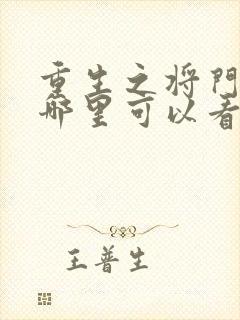 重生之将門
哪里可以看
王普生